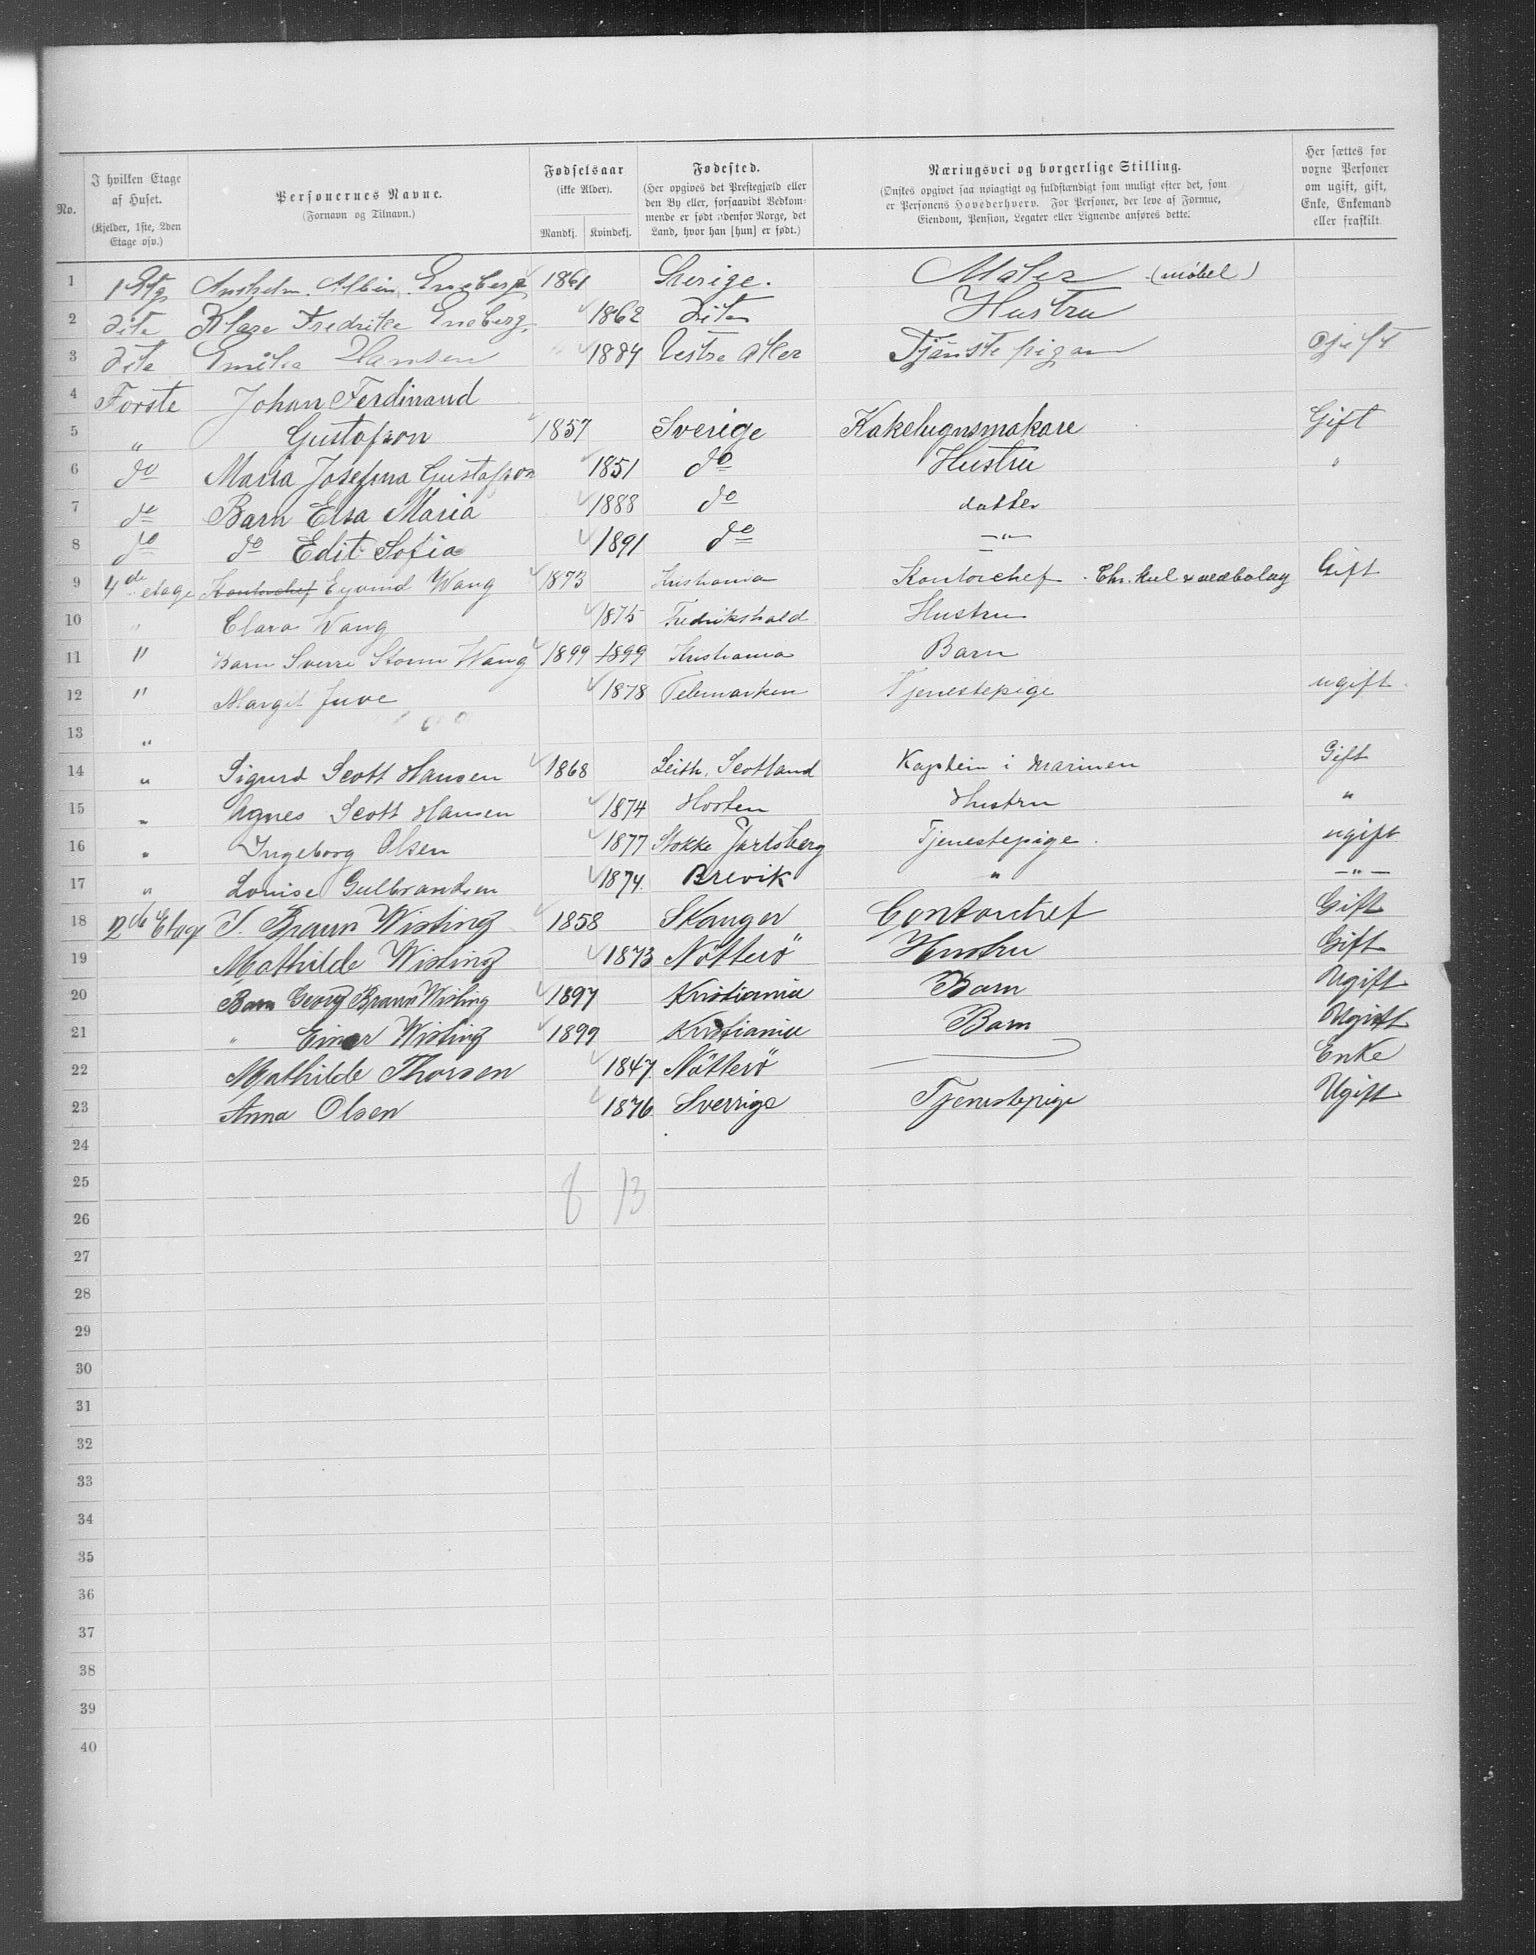 No.
I hvilken Etage af Huset. (Kjelder, 1ste, 2den Etage osv.)
Personernes Navne. (Fornavn og Tilnavn.)
Fødselsaar (ikke Alder). Mandkj. Kvindekj.
Fødested. (Her opgives det Prestegjæld eller den By eller, forsaavidt Vedkommende er født udenfor Norge, det Land, hvor han [hun] er født.)
Næringsvei og borgerlige Stilling. (Ønskes opgivet saa nøiagtigt og fuldstændigt som muligt efter det, som er Personens Hovederhverv. For Personer, der leve af Formue, Eiendom, Pension, Legater eller Lignende anføres dette.
Her sættes for voxne Personer om ugift, gift, Enke, Enkemand eller fraskilt.
1 1 Etg Anshelm Albin Eneberg 1861 Sverige. Maler (møbel)
2 dito Klara Fredrika Eneberg. 1862 dito Hustru
3 dito Emilia Hansen 1884 Vestre Aker Tjänste pigan Gift
4 Förste Johan Ferdinand
5 " Gustafson 1857 Sverige Kakelugnsmakare Gift
6 do Maria Josefina Gustafson 1851 do Hustru "
7 do Barn Elsa Maria 1888 do datter
8 do do Edit Sofia 1891 do —"—
9 4de etage Kontorchef Eyvind Wang 1873 Kristiania Kontorchef Chr. kul & vedbolag Gift
10 " Clara Wang 1875 Fredrikshald Hustru
11 " Barn Sverre Storm Wang 1899 1899 Kristiania Barn
12 " Margit Juve 1878 Telemarken Tjenestepige ugift.
13 "
14 " Sigurd Scott Hansen 1868 Leith, Scotland Kaptein i Marinen Gift
15 " Agnes Scott Hansen 1874 Horten Hustru "
16 " Ingeborg Olsen 1877 Stokke Jarlsberg Tjenestepige. ugift
17 " Louise Gulbrandsen 1874. Brevik " —"—
18 2de Etage T. Braun Wisting 1858 Skanger Contorchef Gift
19 Mathilde Wisting 1873 Nötterö Hustru Gift
20 Barn Georg Braun Wisting 1897 Kristiania Barn Ugift
21 " Einar Wisting 1899 Kristiania Barn Ugift
22 Mathilde Thorsen 1847. Nötterö — Enke
23 Anna Olsen 1876 Sverrige Tjenestepige Ugift
24
25 8 13
26
27
28
29
30
31
32
33
34
35
36
37
38
39
40